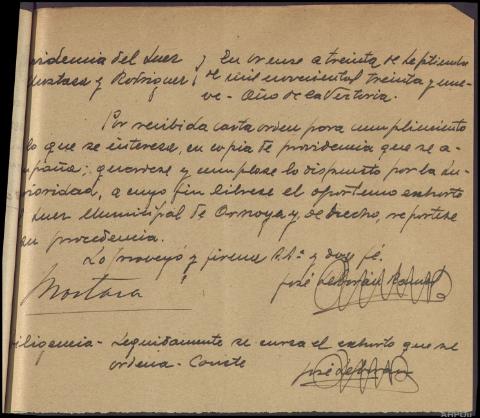 videncia del Juez } En Orense a treinta de Septiembre
Mostaza y Rodriguez } de mil novecientos treinta y nue-
ve - Año de la Victoria.
Por recibida carta orden para cumplimiento
lo que se interesa, en copia de providencia que se a-
mpaña; guardese y cumplase lo dispuesto por la Su-
rioridad, a cuyo fin librese el oportuno exhorto
Juez Municipal de Arnoya y, de hecho, reportese
su procedencia.
Lo proveyó y firma S.Sª y doy fé.
Mostaza
José
iligencia - Seguidamente se cursa el exhorto que se
ordena - Conste
José
ARPOU